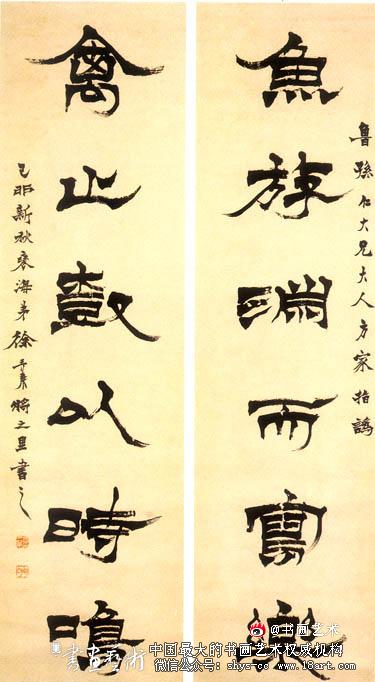 魯孫仁大兄大人方家指謬
魚斿淵而寫樂
禽止以時鳴
己卯新秋褎海弟徐三庚將之書之
@书画艺术
書畫藝術
中国最大的书画艺术权威机构
微信公众号：shys-cc www.18art.com